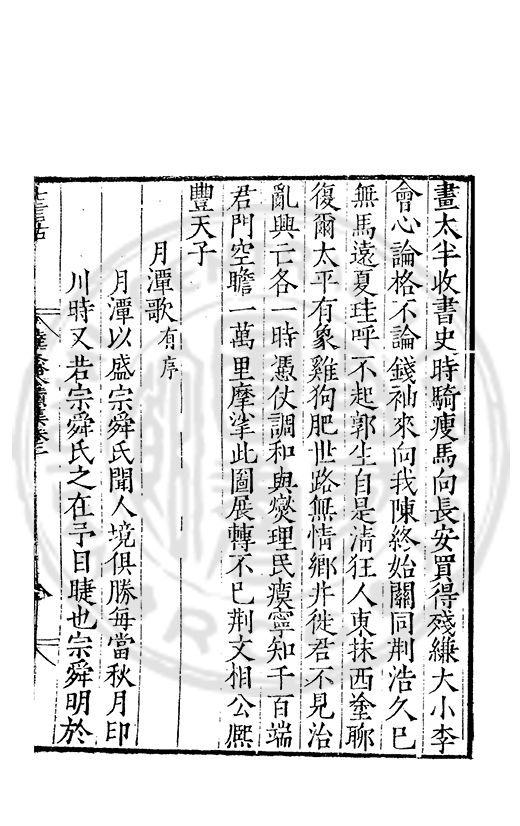 畫太半收書史時騎瘦馬向長安買得殘縑大小李
會心論格不論錢袖來向我陳終始關同荆浩久已
無馬遠夏珪呼不起郭生自是清狂人東抹西塗聊
復爾太平有象雞狗肥世路無情鄉井徙君不見治
亂興亡各一時憑仗調和與爕理民瘼寧知千百端
君門空瞻一萬里摩挲此圖展轉不已荆文相公熈
豐天子
月潭歌有序
月潭以盛宗舜氏聞人境俱勝每當秋月印
川時又若宗舜氏之在予目睫也宗舜明於